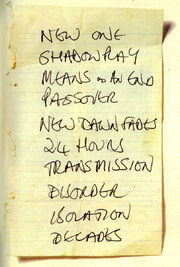 NEW ONE
SHADOWPLAY
MEANS TO AN END
PASSOVER
NEW DAWN FADES
24 HOURS
TRANSMISSION
DISORDER
ISOLATION
DECADES